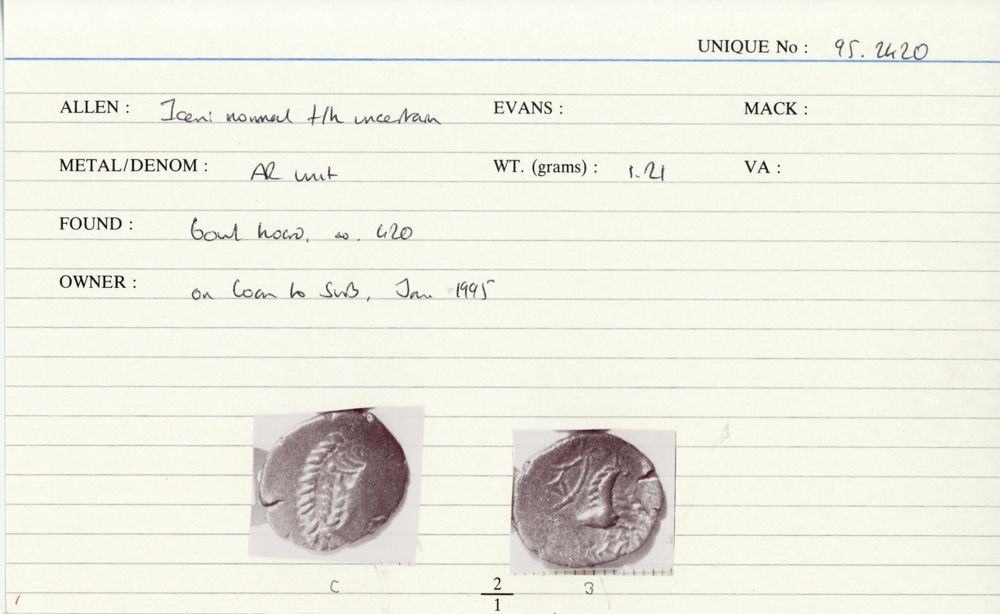 UNIQUE No : 95. 2420
ALLEN : Iceni normal f/h uncertain EVANS : MACK :
METAL/DENOM : AR unit WT. (grams) : 1.21 VA :
FOUND : hoard, no. 420
OWNER : on loan to SWB, Jan 1995
C 2 3
1